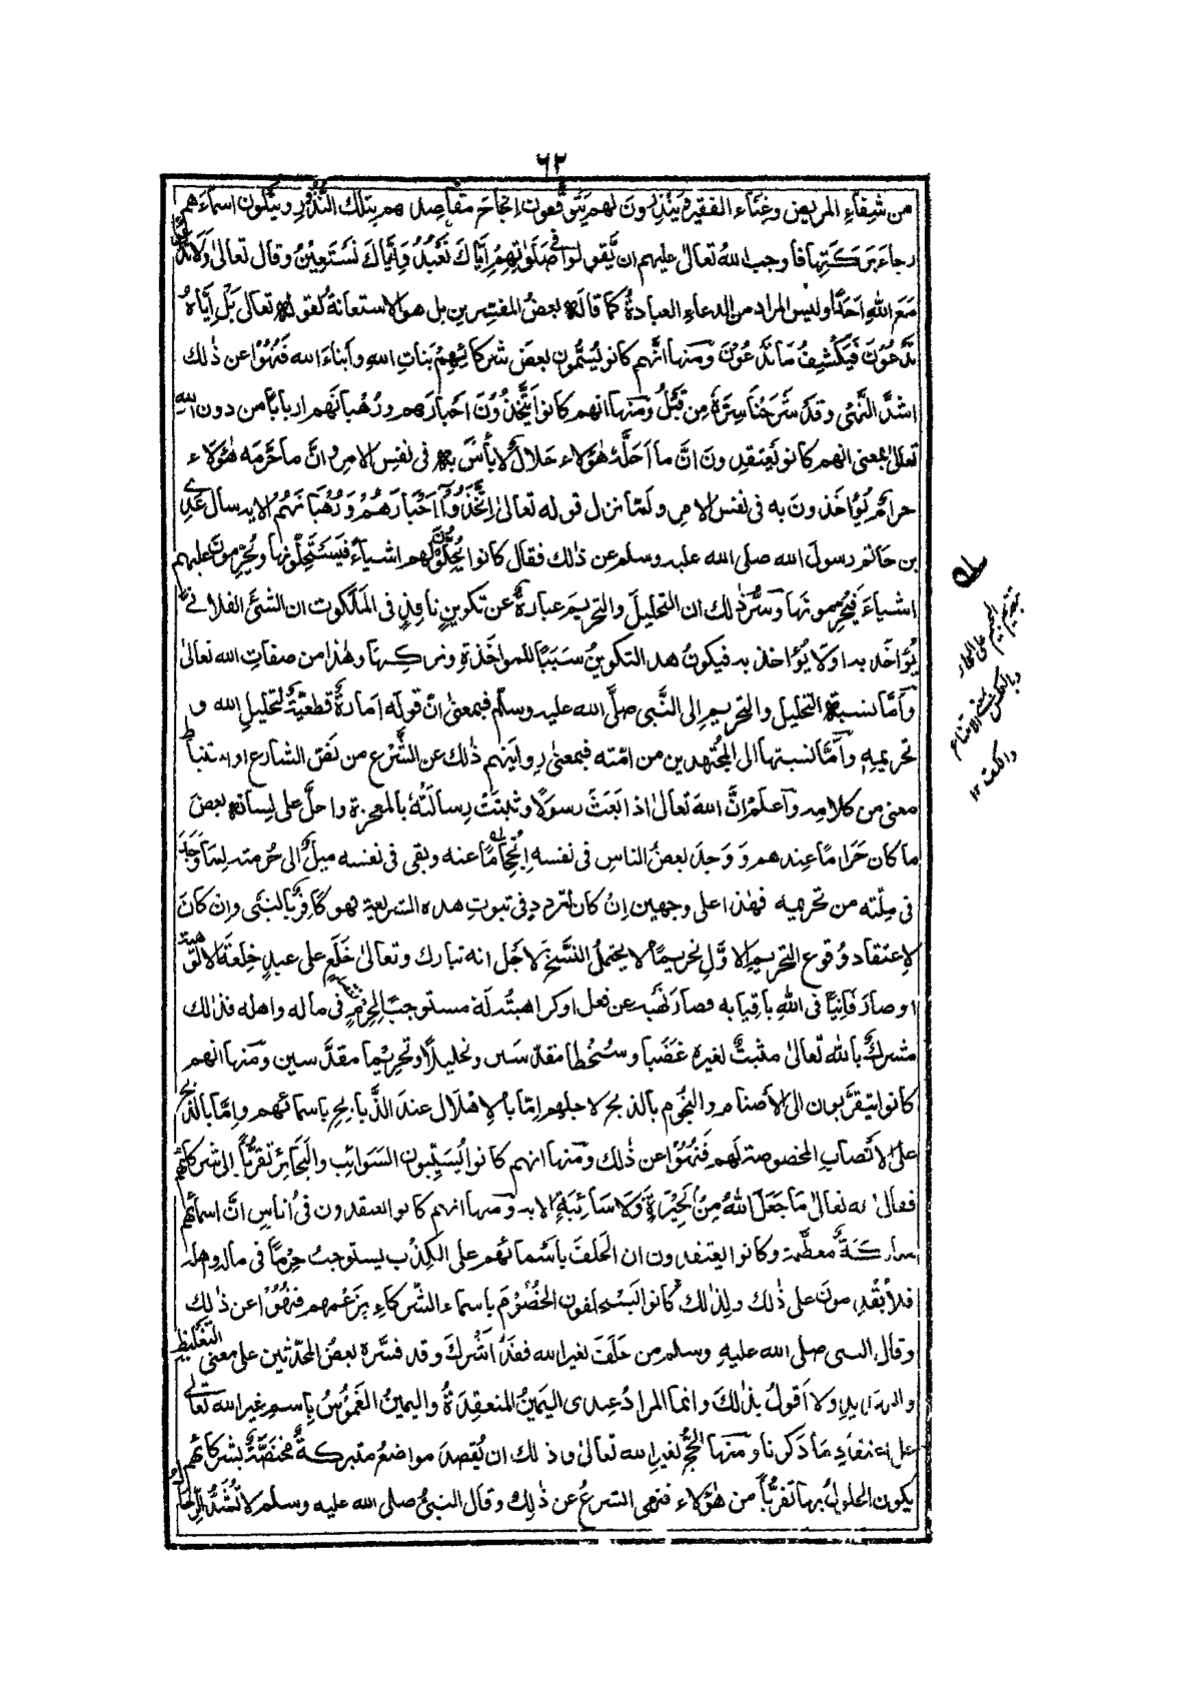 ٦٢
من شِفاءِ المريض وغِنَاء الفقير وَيَنْذِرُونَ لهم يَتَوَقَّعون اِنجاحَ مقاصدِهم بتلك النُّذُورِ ويَتْلُون اسماءَهم
رجاءَ بَرَكَتِها فاوجب اللهُ تعالىٰ عليهم ان يَّقولوا فى صَلَوٰتِهِمْ اِيَّاكَ نَعْبُدُ وَاِيَّاكَ نَسْتَعِيْنُ وقال تعالىٰ وَلَا تَدْعُوْا
مَعَ اللهِ اَحَدًا وليس المراد من الدعاءِ العبادةُ كما قاله بعضُ المفسّرين بل هو الاستعانة كقوله تعالىٰ بَلْ اِيَّاهُ
تَدْعُوْنَ فَيَكْشِفُ مَا تَدْعُوْنَ ومنها انَّهم كانوا يُسَمُّون بعضَ شركائِهِمْ بَنَاتِ اللهِ وابناءَ الله فَنُهُوْا عن ذٰلك
اشدَّ النَّهْىِ وقد شَرَحْنَا سِرَّهٗ مِن قَبْلُ ومنها انهم كانوا يَتَّخِذُوْنَ اَحْبَارَهم ورُهْبَانَهم اربابًا من دون الله
تعالىٰ بمعنى انهم كانوا يَعْتقدونَ انَّ ما اَحَلَّهٗ هٰؤلاء حلالٌ لا بأسَ به فى نفسِ الامرِ وانَّ ما حرَّمه هٰؤلاء
حرامٌ يُؤاخَذونَ به فى نفس الامرِ ولَمّا نزل قوله تعالىٰ اِتَّخَذُوْآ اَحْبَارَهُمْ وَرُهْبَانَهُمْ الاٰية سأل عَدِىّ
بن حاتم رسولَ الله صلى الله عليه وسلم عن ذٰلك فقال كانوا يُحِلُّوْنَ لهم اشياءَ فيَسْتَحِلُّونها ويُحَرِّمونَ عليهم
اشياءَ فيُحرِّمونها وسرُّ ذٰلك ان التحليلَ والتحريمَ عبارةٌ عن تكوينٍ نافذٍ فى المَلَكوت ان الشئَ الفلانىَّ
يُؤاخَذ به او لا يُؤاخذ به فيكونُ هذا التكوينُ سَبَبًا للمواخذةِ وتركِها وهٰذا من صفاتِ الله تعالىٰ
وامّا نسبة التحليل والتحريمِ الى النَّبى صلَّى الله عليه وسلّم فبمعنىٰ انّ قولَه اَمارةٌ قطعيّةٌ لتحليلِ الله و
تحريمِه وامّا نسبتها الى المجتهدين من امّته فبمعنىٰ رِوايتهم ذٰلك عن الشَّرْعِ من نصّ الشارع او استنباط
معنى من كلامِه واعلمْ انَّ اللهَ تعالىٰ اذا بَعَثَ رسولًا وثبتتْ رِسالَتُهٗ بالمعجزة واحلَّ على لِسانِه بعضَ
ما كان حَرامًا عِندهم وَوَجدَ بعضُ الناسِ فى نفسه اِنْحِجَامًا عنه وبقى فى نفسه ميلٌ الى حُرمته لِمَا وَجَدَ
فى مِلَّته من تحريمه فهٰذا على وجهين اِنْ كان لتردُّدٍ فى ثبوتِ هذه الشريعةِ فهو كافِرٌ بالنبىّ وان كانَ
لاِعتقادِ وُقوعِ التحريمِ الاوَّلِ تحريمًا لا يحتملُ النَّسْخَ لاجل انه تبارك وتعالىٰ خَلَعَ على عبدٍ خِلعَةَ الالوهيّة
او صارَ فَانِيًا فى اللهِ باقيا به فصارَ نَهْيُه عن فعلٍ او كراهيتُه لَه مستوجبًا لحرمٍ فى ماله واهله فذٰلك
مشركٌ بالله تعالىٰ مثبتٌ لغيرهٖ غضبًا وسُخْطًا مقدّسَين وتحليلًا وتحريمًا مقدَّسين ومنها انهم
كانوا يتقرَّبون الى الاَصنام والنجُوم بالذبح لاجلهم اِمّا بالاِهْلَال عندَ الذَّبائحِ باسمائهم وامّا بالذبح
على الاَنْصابِ المخصوصة لهم فَنُهُوْا عن ذٰلك ومنها انهم كانوا يُسَيِّبون السَوَائِبَ والبَحَائِرَ تقرُّبًا الى شركائهم
فقال الله تعالىٰ مَا جَعَلَ اللهُ مِنْ بَحِيْرَةٍ وَّلَا سَائِبَةٍ الاٰية ومنها انهم كانوا يعتقدون فى اُناسٍ انَّ اسمائَهم
مباركةٌ معظّمة وكانوا يعتقدون ان الحَلفَ باَسْمائهم على الكِذْب يستوجبُ حِرْمًا فى ماله واهله
فلا يُقْدِمونَ على ذٰلك ولِذٰلك كانوا يَسْتحلفون الخُصُوْمَ باسماءِ الشّركاءِ بِزَعْمهم فنُهُوْا عن ذٰلك
وقال النبى صلى الله عليهِ وسلم من حَلَفَ لغير الله فقدْ اَشْركَ وقد فسَّره بعضُ المحدّثين على معنى التغليظ
والتهديد ولا اَقولُ بذٰلكَ وانما المرادُ عندى اليَمينُ المنعقِدةُ واليمينُ الغَمُوْسُ باسمِ غيرِ الله تعالىٰ
على اعتقادِ مَا ذكرنا ومنها الحَجُّ لغيرِ الله تعالىٰ وذٰلك ان يُقصدَ مواضعُ متبركةٌ مختصَّةٌ بشركائهم
يكون الحلولُ بها تقرُّبًا من هٰؤلاء فنهى الشرعُ عن ذٰلك وقال النبىُّ صلى الله عليه وسلم لا تُشَدُّ الرِّحَالُ
بتقديم الجيم على الحاء
وبالعكس بمعنى الامتناع
والكف ١٢